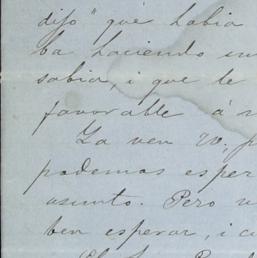 dijo" que habia
ba haciendo
sabia, i que le
favorable á
Ya ven W,
podemos esper
asunto. Pero
ben esperar, i